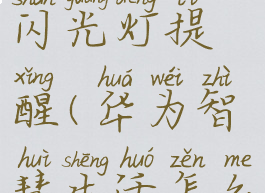 shǎn guāng dēng tí
闪光灯提
xǐng huá wéi zhì
醒(华为智
huì shēng huó zěn me
慧生活怎么